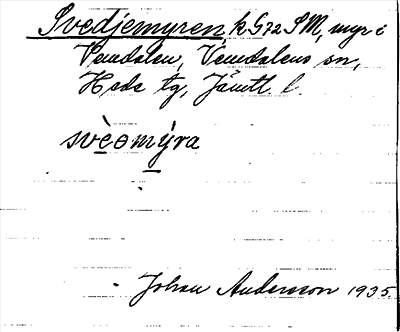 Svedjemyren, k G72 SM, myr i
Vemdalen, Vemdalens sn,
Hede tg, Jämtl. l.
svèɵmýra
Johan Andersson 1935